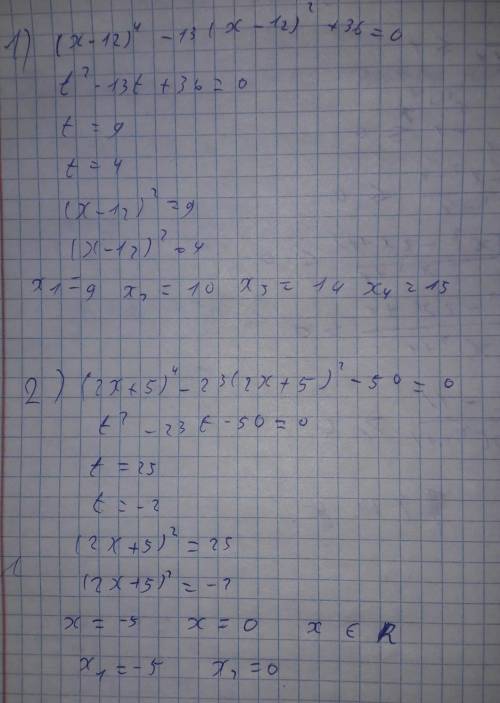 1) (x-12)⁴ -13(x-12)² +36=0
t²-13t+36=0
t=9
t=4
(x-12)²=9
(x-12)²=4
x₁=9 x₂=10 x₃=14 x₄=15
2) (2x+5)⁴-23(2x+5)²-50=0
t²-23t-50=0
t=25
t=-2
(2x+5)²=25
(2x+5)²=-2
x=-5 x=0 x∈R
x₁=-5 x₂=0